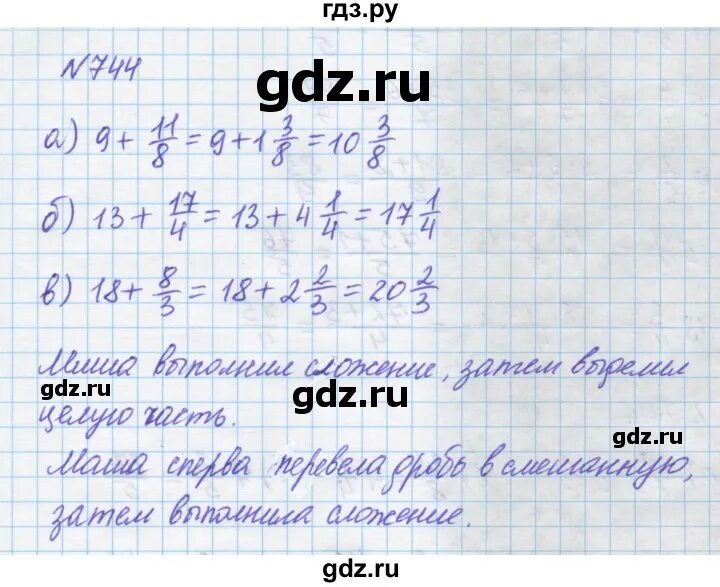 гдз.ру
N744
gdz.ru
а) 9 + 11/8 = 9 + 1 3/8 = 10 3/8
б) 13 + 17/4 = 13 + 4 1/4 = 17 1/4
в) 18 + 8/3 = 18 + 2 2/3 = 20 2/3
Миша выполнил сложение, затем выделил
gdz.ru gdz.ru
целую часть.
gdz.ru
Маша сперва перевела дробь в смешанную,
gdz.ru
затем выполнила сложение.
gdz.ru